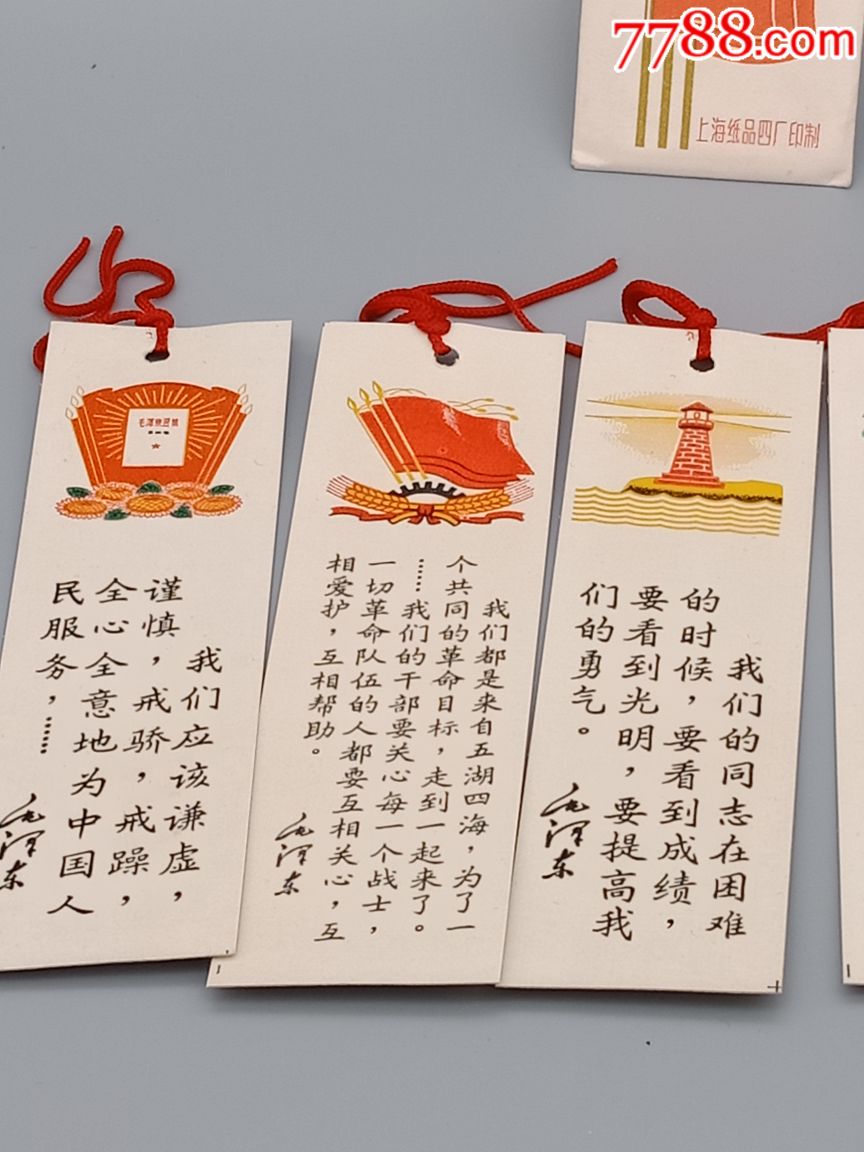 7788.com
上海纸品四厂印制
毛澤東選集
我们应该谦虚，
谨慎，戒骄，戒躁，
全心全意地为中国人
民服务，……
毛泽东
我们都是来自五湖四海，为了一
个共同的革命目标，走到一起来了。
……我们的干部要关心每一个战士，
一切革命队伍的人都要互相关心，互
相爱护，互相帮助。
毛泽东
我们的同志在困难
的时候，要看到成绩，
要看到光明，要提高我
们的勇气。
毛泽东